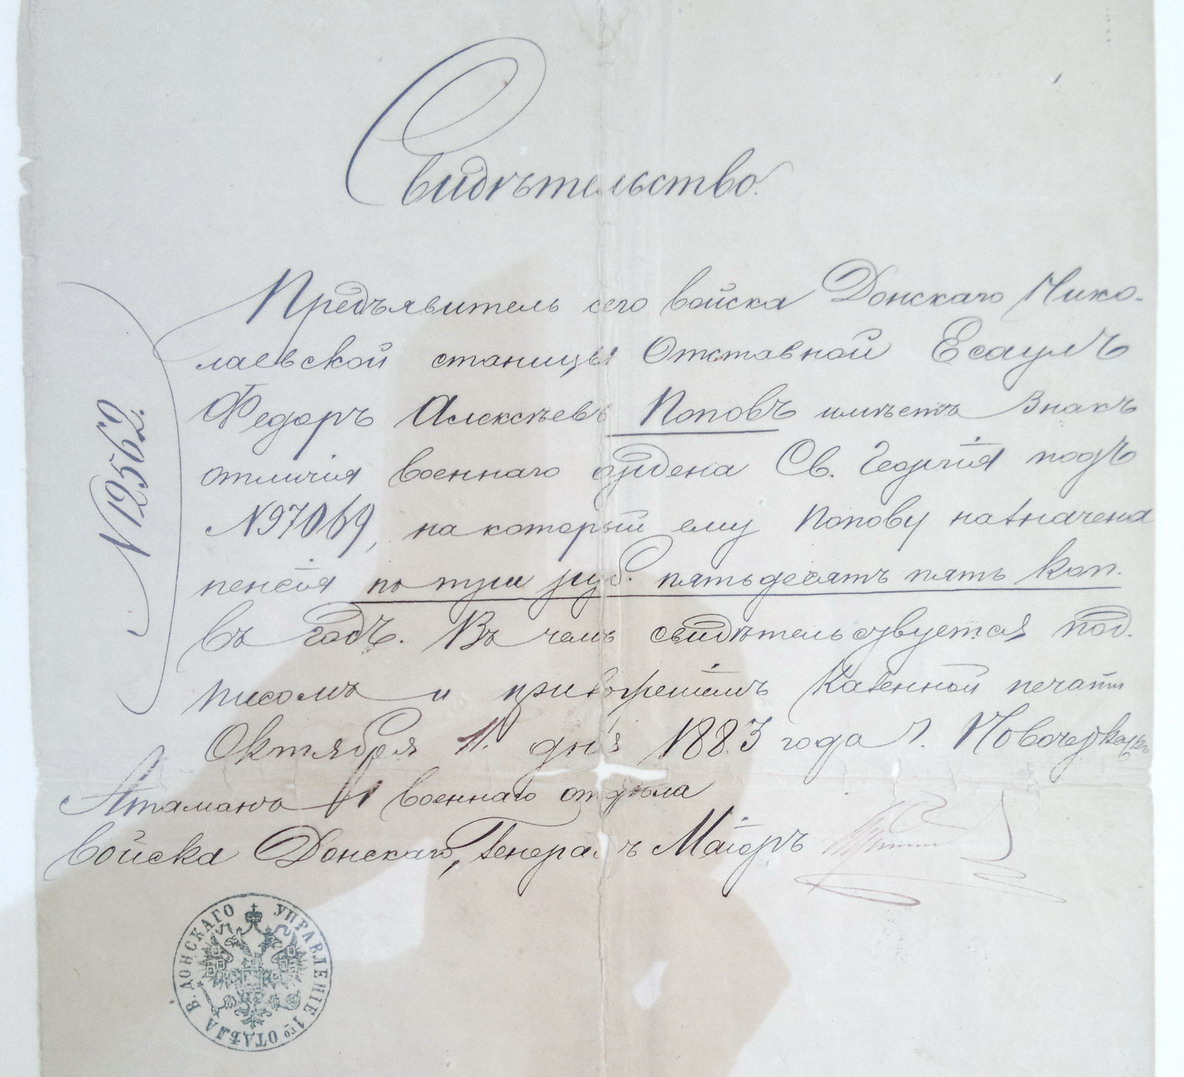 Свидѣтельство.
Предъявитель сего войска Донскаго Нико-
лаевской станицы Отставной Есаулъ
Федоръ Алексѣевъ Поповъ имѣетъ Знакъ
отличія военнаго ордена Св. Георгія подъ
№97069, на который ему Попову назначена
пенсія по три руб. пятьдесятъ пять коп.
въ годъ. Въ чемъ свидѣтельствуется под-
писомъ и приложеніемъ Казенной печати
Октября 11. дня 1883 года г. Новочеркаскъ
Атаманъ 1 военнаго отдѣла
Войска Донскаго, Генералъ Маіоръ
№12562.
УПРАВЛЕНІЕ 1го ОТДѢЛА В. ДОНСКАГО